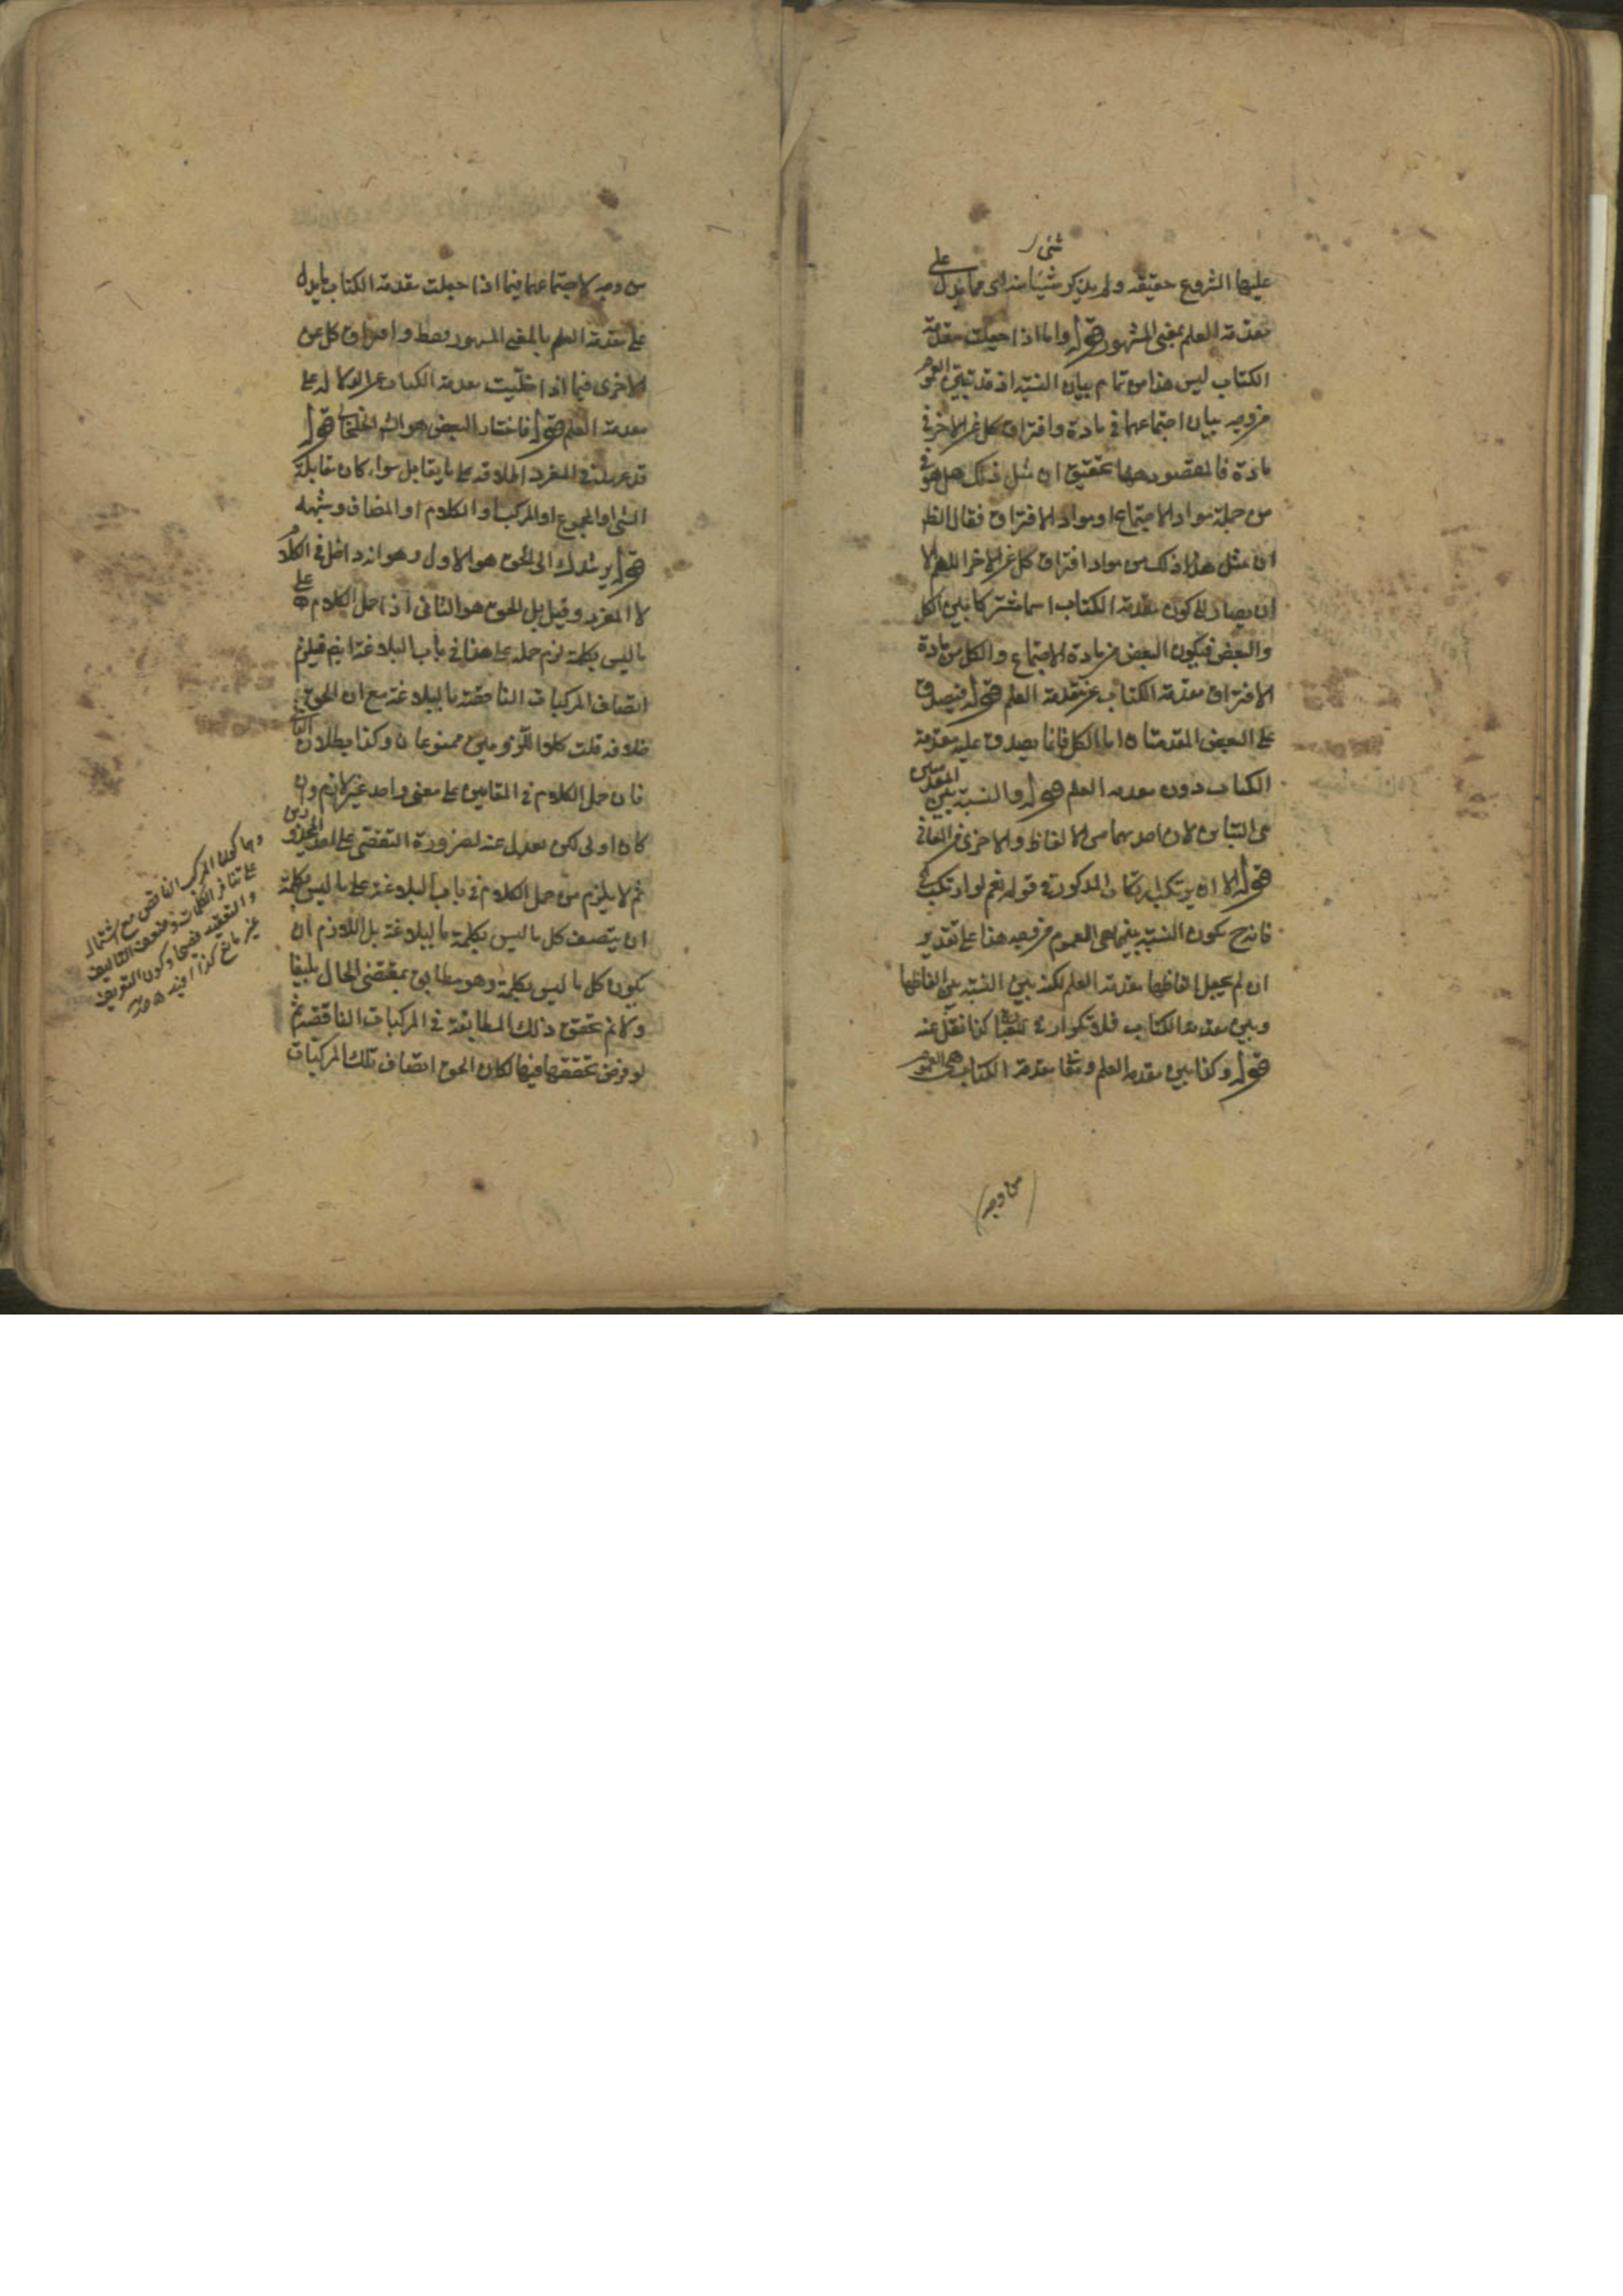 عليها الشروع حقيقه ولم يذكر شيئا منه اى مما يدل على
شئ
مقدمة العلم بمعنى المشهور قوله واما اذا جعلت مقدمة
الكتاب ليس هذا من تمام بيان النسبة اذ قد تبين العموم
من وجه بيان اجتماعهما في مادة وافتراق كل عن الاخر في
مادة فالمقصود ههنا تحقيق ان مثل ذلك هل هو في
من جملة مواد الاجتماع او مواد الافتراق فقال الظ
ان مثل هذا ذلك من مواد افتراق كل عن الاخر اللهم الا
ان يصار الى كون مقدمة الكتاب اسما مشتركا بين الكل
والبعض فيكون البعض من مادة الاجتماع والكل من مادة
الافتراق مقدمة الكتاب عن مقدمة العلم قوله فيصدق
على البعض المقدمتان اما الكل فانما يصدق عليه مقدمة
الكتاب دون مقدمة العلم قوله والنسبة بين المقدمتين
هى التباين لان احديهما من الالفاظ والاخرى من المعانى
قوله الا ان يرتكب ارتكاب المذكور في قوله نعم لو ارتكب
فانه ح يكون النسبة بينهما هى العموم من وجه هذا على تقدير
ان لم يجعل الفاظها مقدمة العلم لكنه بين النسبة بين الفاظها
وبين مقدمة الكتاب فلا تكرار كذا نقل عنه
قوله وكذا بين مقدمة العلم ومقدمة الكتاب هى العموم
من وجه
من وجه لاجتماعهما فيما اذا جعلت مقدمة الكتاب ما يدل
على مقدمة العلم بالمعنى المشهور فقط وافتراق كل عن
الاخرى فيما اذا خلّيت مقدمة الكتاب عن الدلالة على
مقدمة العلم قوله فاختار البعض هو الش الخلخالى قوله
قد عرفت في المفرد اطلاقه على ما يقابل سواء كان مقابلة
المثنى او المجموع او المركب او الكلام او المضاف وشبهه
قوله يرشدك الى الحق هو الاول وهو انه داخل في الكلام
لا المفرد وقيل بل الحق هو الثانى اذ احمل الكلام على
ما ليس بكلمة لزم حمله على هذا في باب البلاغة ايضم فيلزم
اتصاف المركبات الناقصة بالبلاغة مع ان الحق
خلافه قلت كلا اللزومين ممنوعان وكذا بطلان التالى
فان حمل الكلام في المقامين على معنى واحد غير لازم وان
كان اولى لكن يعدل عنه لضرورة التفصى على المحذورين
ثم لا يلزم من حمل الكلام في باب البلاغة على ما ليس بكلمة
ان يتصف كل ما ليس بكلمة بالبلاغة بل اللازم ان
يكون كل ما ليس بكلمة وهو مطابق بمقتضى الحال بليغا
ولا نم تحقق ذلك المطابقة في المركبات الناقصة ثم
لو فرض تحققها فيها لكان الحق اتصاف تلك المركبات
وهما كون المركب الناقص مع اشتماله
على تنافر الكلمات وضعف التاليف
والتعقيد فصيحا وكون التعريف
غير مانع كذا افيد منه